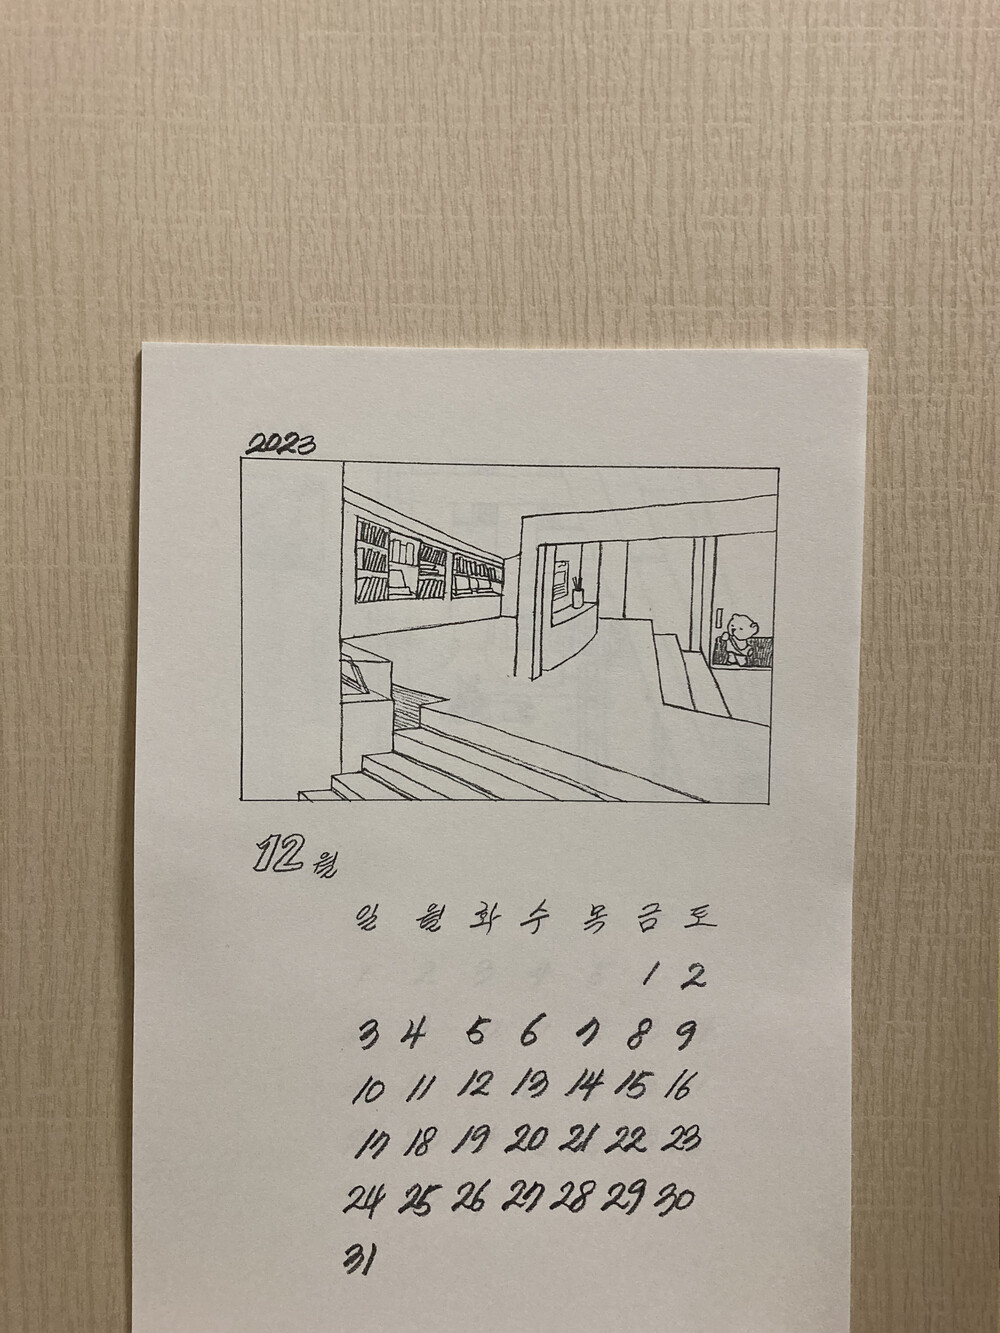 2023
12월
일 월 화 수 목 금 토
1 2
3 4 5 6 7 8 9
10 11 12 13 14 15 16
17 18 19 20 21 22 23
24 25 26 27 28 29 30
31